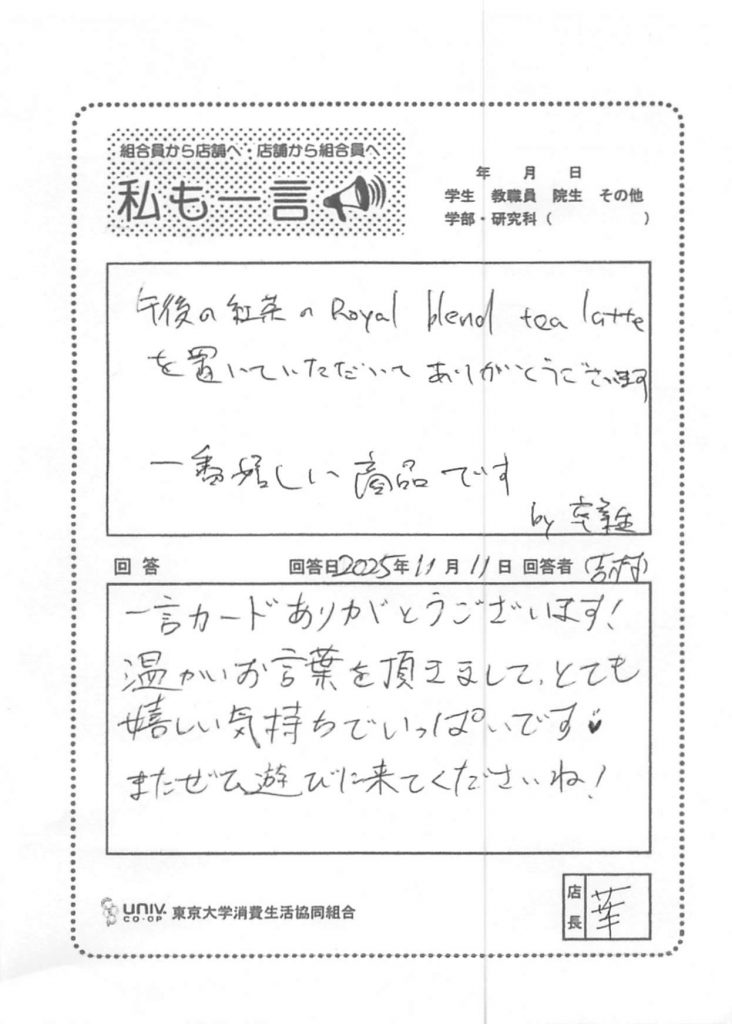 組合員から店舗へ・店舗から組合員へ
私も一言
年 月 日
学生 教職員 院生 その他
学部・研究科( )
午後の紅茶の Royal blend tea latte
を置いていただいて ありがとうございます
一番嬉しい 商品です
by
回答 回答日2025年11月11日 回答者(吉村)
一言カードありがとうございます!
温かいお言葉を頂きまして、とても
嬉しい気持ちでいっぱいです♥
またぜひ遊びに来てくださいね!
UNIV. CO-OP 東京大学消費生活協同組合
店長 華